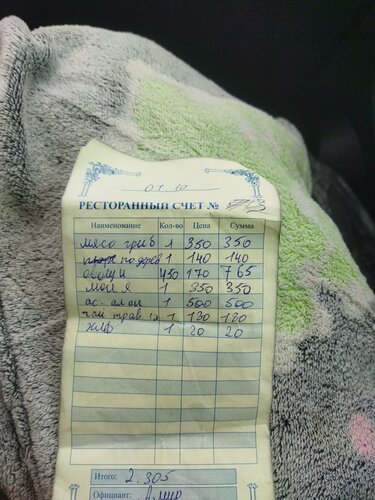 07.10
РЕСТОРАННЫЙ СЧЕТ №
Наименование Кол-во Цена Сумма
мясо гриб 1 350 350
по дерев 1 140 140
овощи 450 170 765
мой я 1 350 350
ас. алан 1 500 500
чай трав 1 180 180
хлб 1 20 20
Итого: 2.305
Официант: